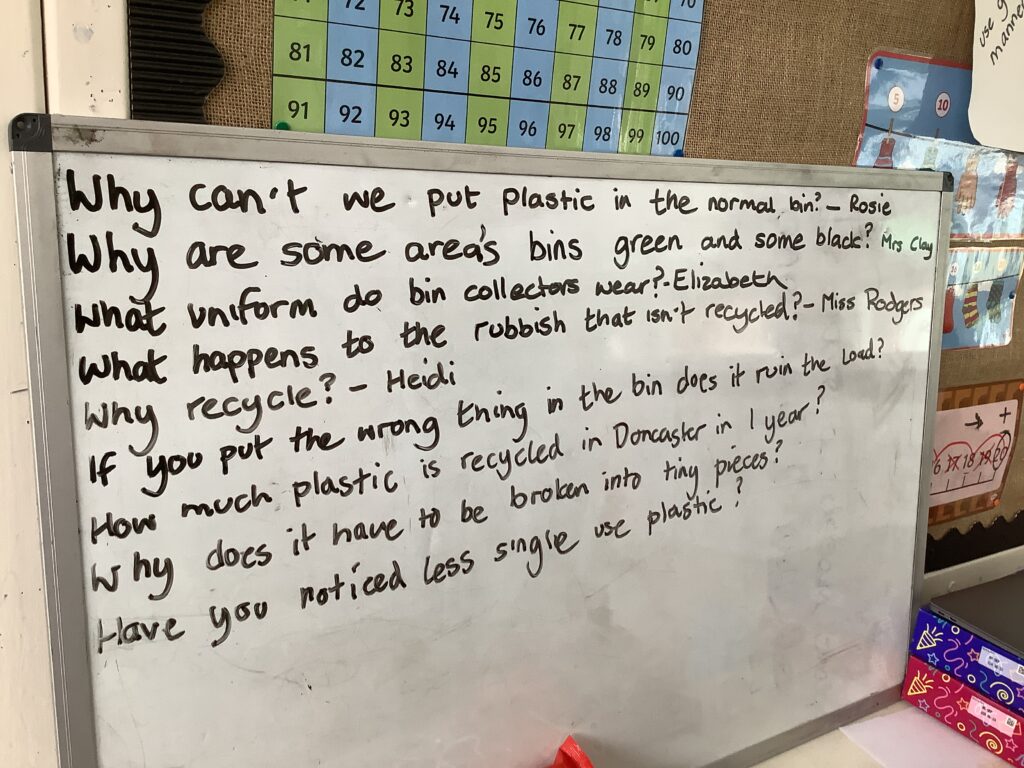 71 72 73 74 75 76 77 78 79 80
81 82 83 84 85 86 87 88 89 90
91 92 93 94 95 96 97 98 99 100
use
manne
5 10
Why can't we put plastic in the normal bin? - Rosie
Why are some area's bins green and some black? Mrs Clay
What uniform do bin collectors wear? - Elizabeth
What happens to the rubbish that isn't recycled? - Miss Rodgers
Why recycle? - Heidi
If you put the wrong thing in the bin does it ruin the load?
How much plastic is recycled in Doncaster in 1 year?
Why does it have to be broken into tiny pieces?
Have you noticed less single use plastic?
→ +
6 17 18 19 20